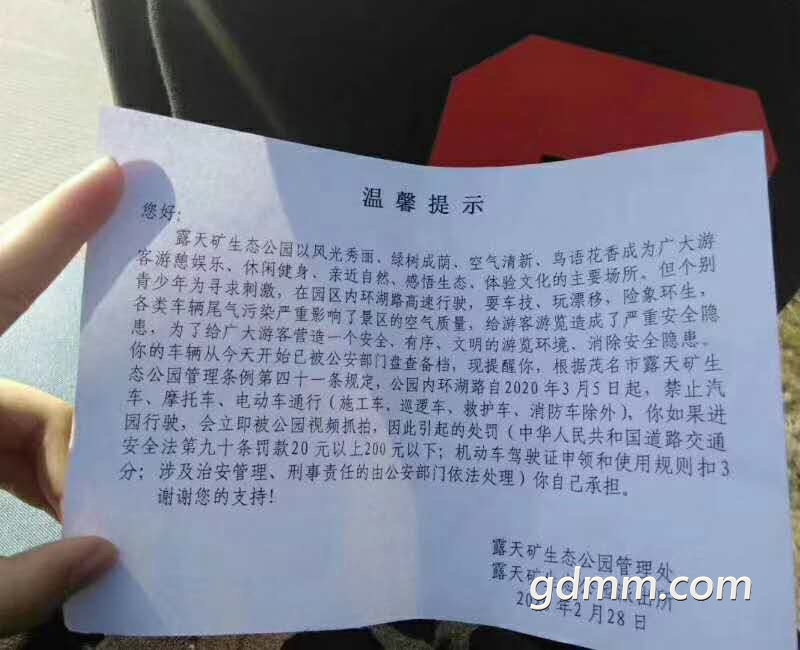 温馨提示
您好：
露天矿生态公园以风光秀丽、绿树成荫、空气清新、鸟语花香成为广大游
客游憩娱乐、休闲健身、亲近自然、感悟生态、体验文化的主要场所。但个别
青少年为寻求刺激，在园区内环湖路高速行驶，耍车技、玩漂移，险象环生，
各类车辆尾气污染严重影响了景区的空气质量，给游客游览造成了严重安全隐
患，为了给广大游客营造一个安全、有序、文明的游览环境、消除安全隐患。
你的车辆从今天开始已被公安部门盘查备档，现提醒你，根据茂名市露天矿生
态公园管理条例第四十一条规定，公园内环湖路自2020年3月5日起，禁止汽
车、摩托车、电动车通行（施工车、巡逻车、救护车、消防车除外），你如果进
园行驶，会立即被公园视频抓拍，因此引起的处罚（中华人民共和国道路交通
安全法第九十条罚款20元以上200元以下；机动车驾驶证申领和使用规则扣3
分；涉及治安管理、刑事责任的由公安部门依法处理）你自己承担。
谢谢您的支持！
露天矿生态公园管理处
露天矿生
年2月28日
gdmm.com